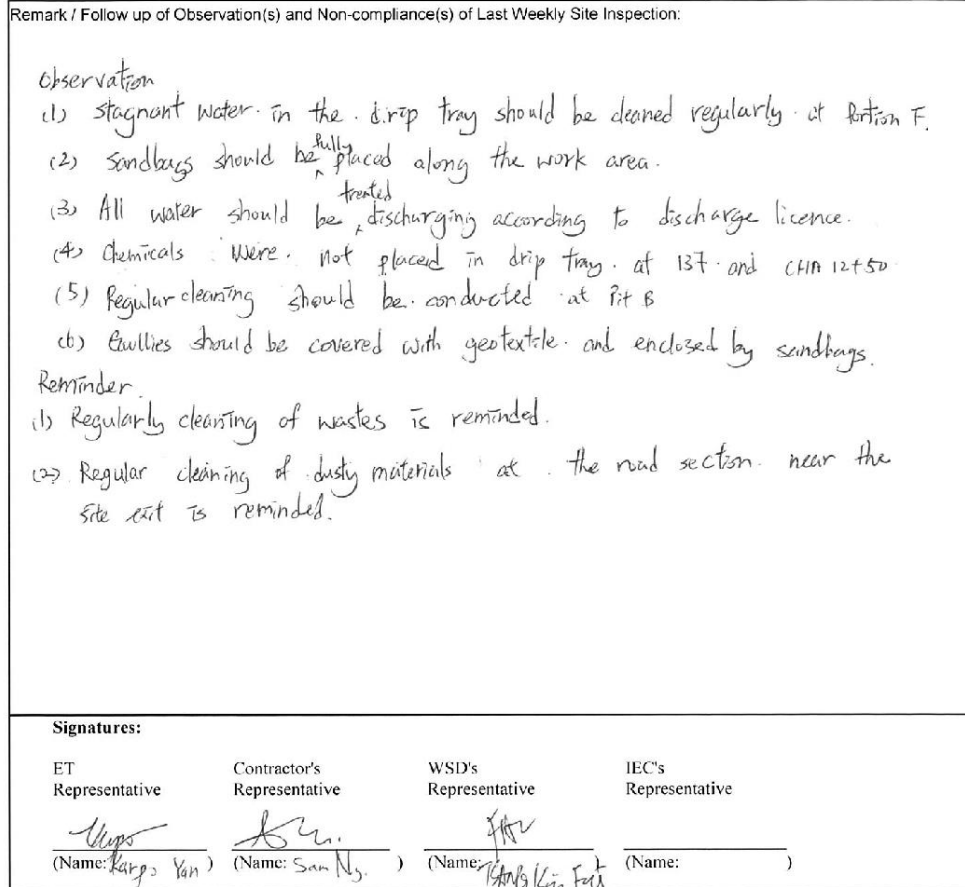 Remark / Follow up of Observation(s) and Non-compliance(s) of Last Weekly Site Inspection:
Observation
(1) Stagnant water in the drip tray should be cleaned regularly at Portion F.
(2) Sandbags should be fully placed along the work area.
(3) All water should be treated discharging according to discharge licence.
(4) Chemicals were not placed in drip tray at 137 and CHA 12+50
(5) Regular cleaning should be conducted at Pit B
(6) Gullies should be covered with geotextile and enclosed by sandbags.
Reminder
(1) Regularly cleaning of wastes is reminded.
(2) Regular cleaning of dusty materials at the road section near the
site exit is reminded.
Signatures:
ET Contractor's WSD's IEC's
Representative Representative Representative Representative
(Name: Yan ) (Name: Sam Ng. ) (Name: ) (Name: )